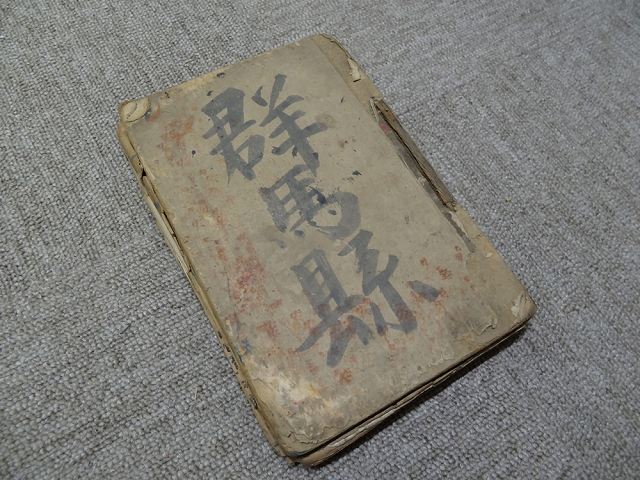 群馬縣